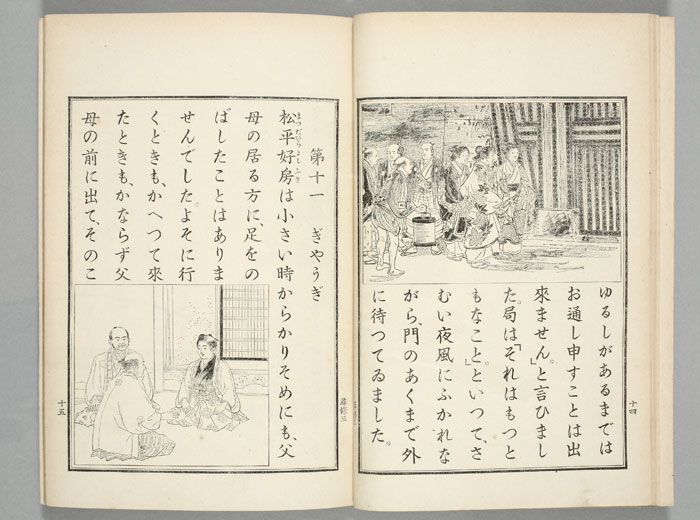 ゆるしがあるまでは
お通し申すことは出
來ません。」と言ひまし
た。局は「それはもつと
もなこと。」といつて、さ
むい夜風にふかれな
がら、門のあくまで外
に待つてゐました。
十四
尋修三
第十一 ぎやうぎ
松平好房は小さい時からかりそめにも、父
まつだひらよしふさ
母の居る方に、足をの
ばしたことはありま
せんでした。よそに行
くときも、かへつて來
たときも、かならず父
母の前に出て、そのこ
十五